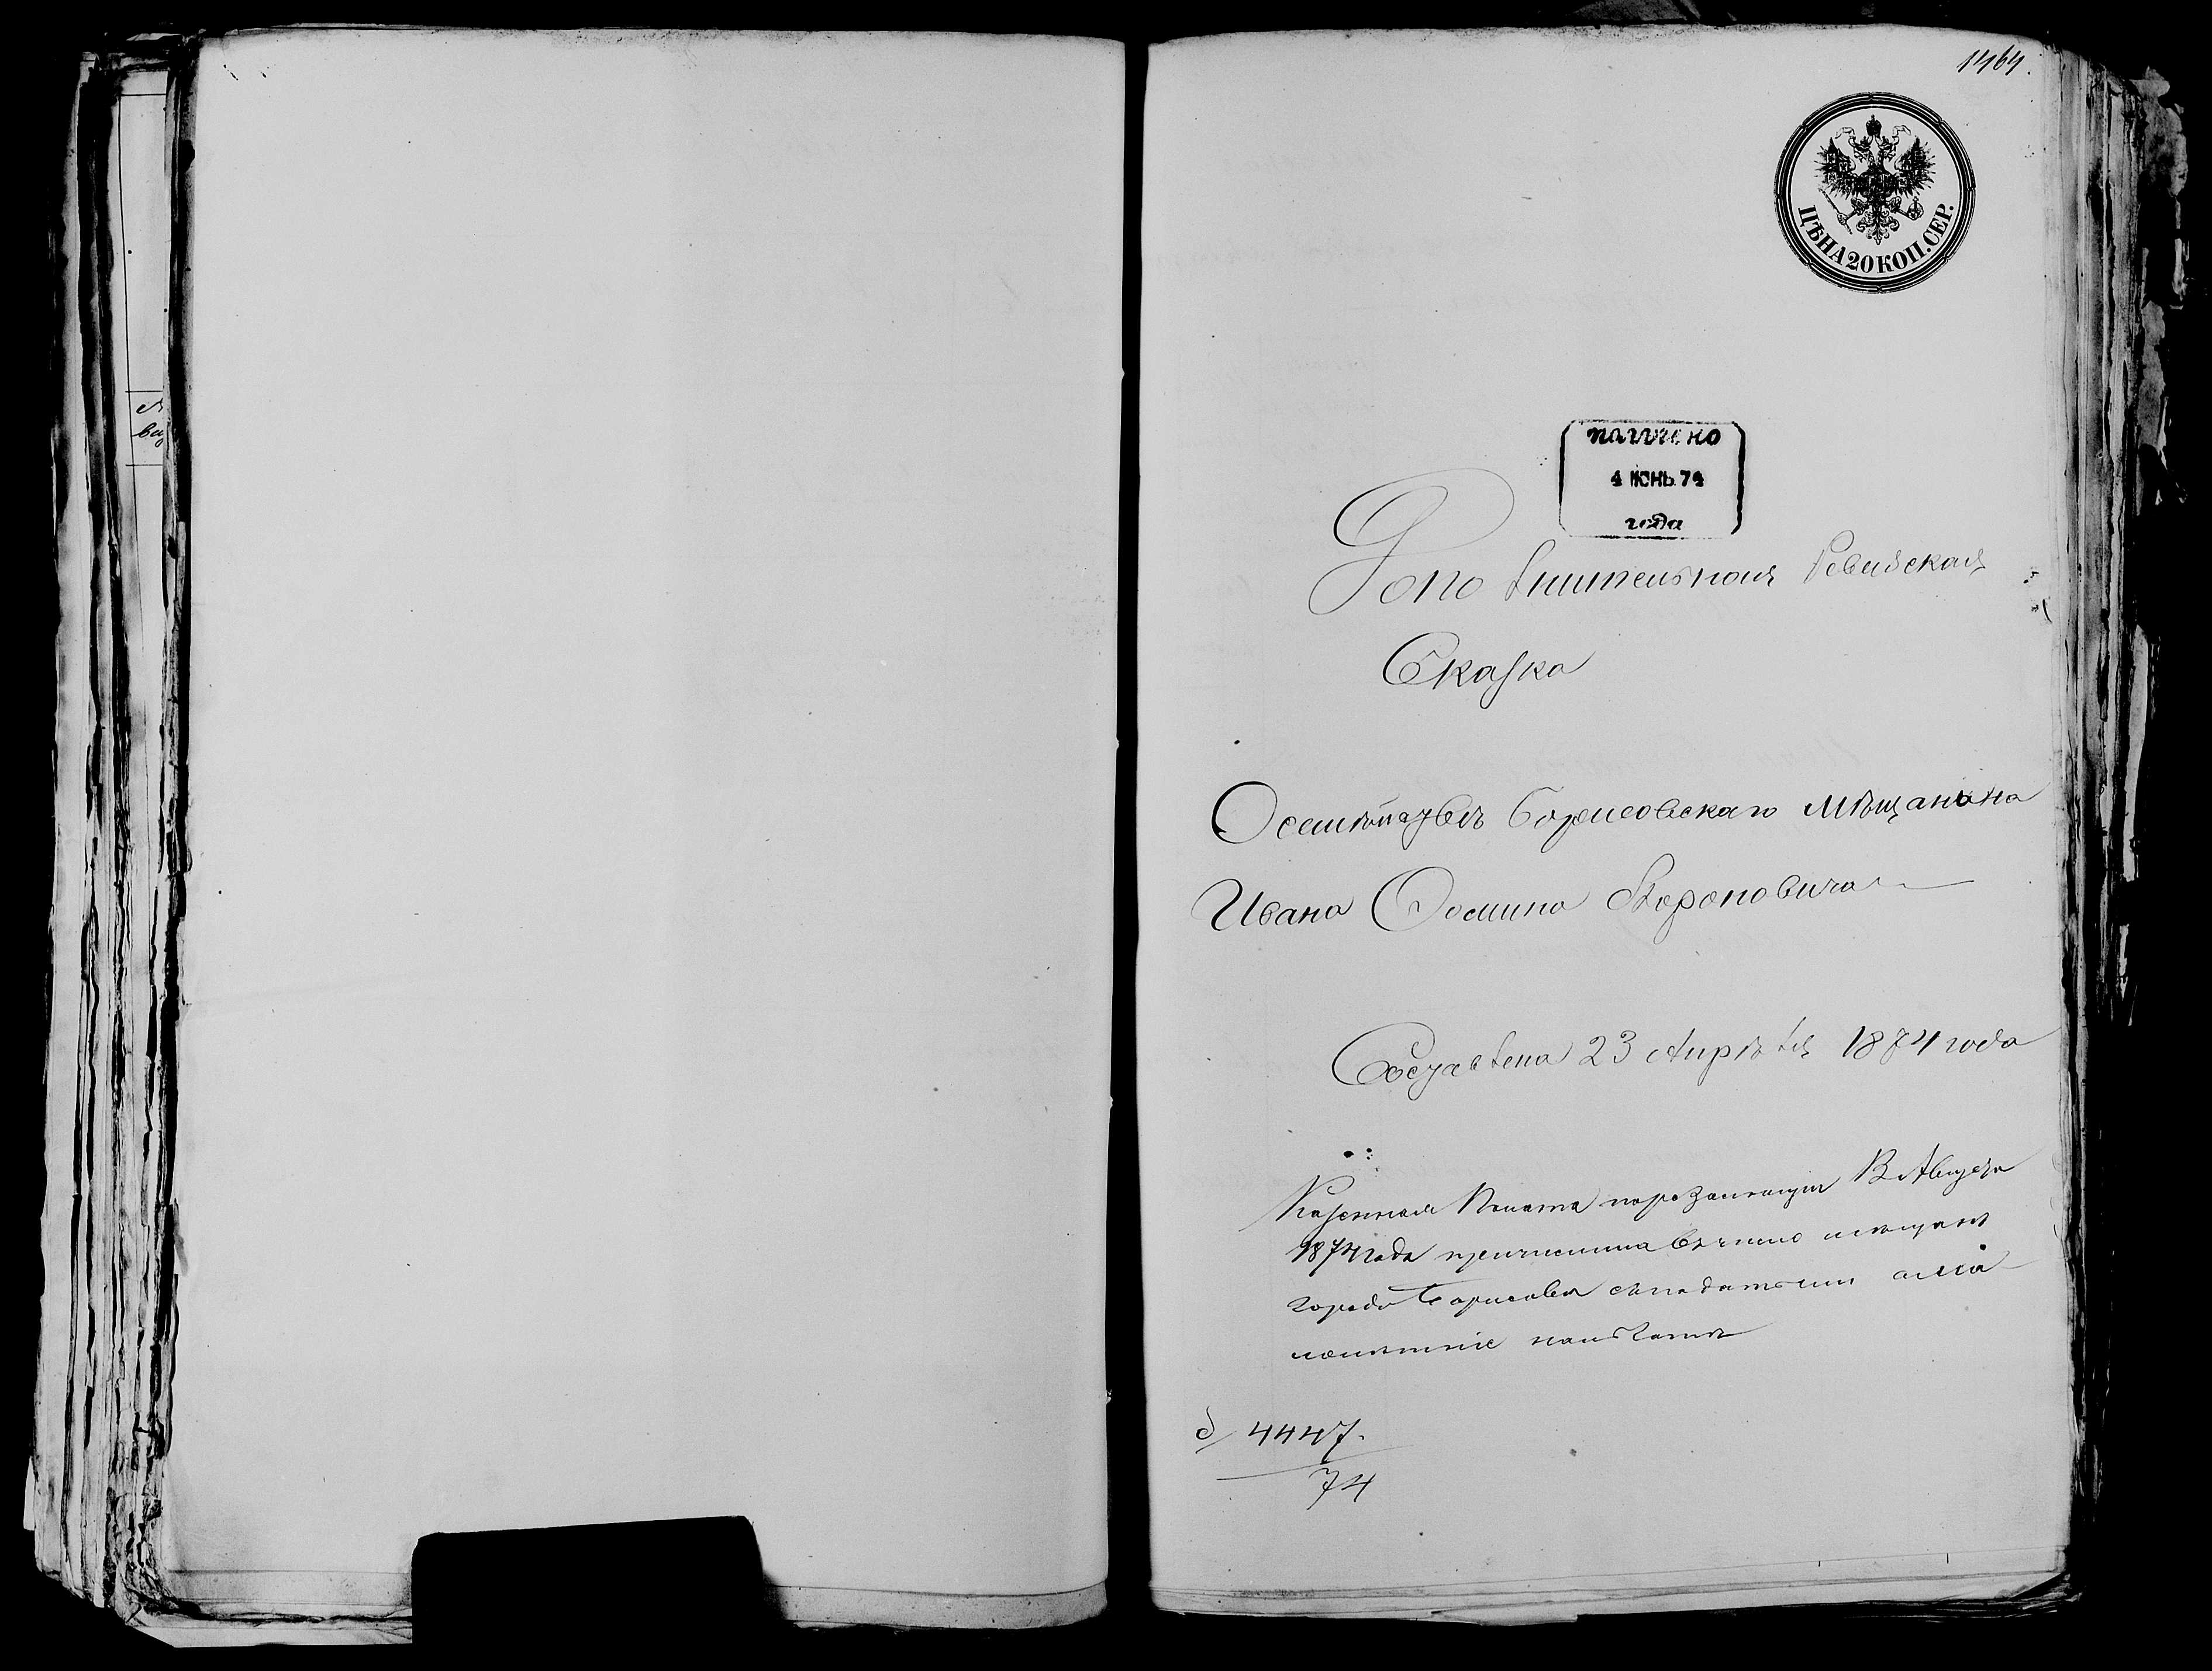 1464.
ЦѢНА 20 КОП. СЕР.
получено
4 ІЮНЬ 74
года
Дополнительная Ревизская
Сказка
О семействѣ Борисовскаго Мѣщанина
Ивана Осипова
Составлена 23 Апрѣля 1874 года
Казенная Палата по резолюціи Августа
1874 года причислила въ число мѣщанъ
города Борисова
4447.
74